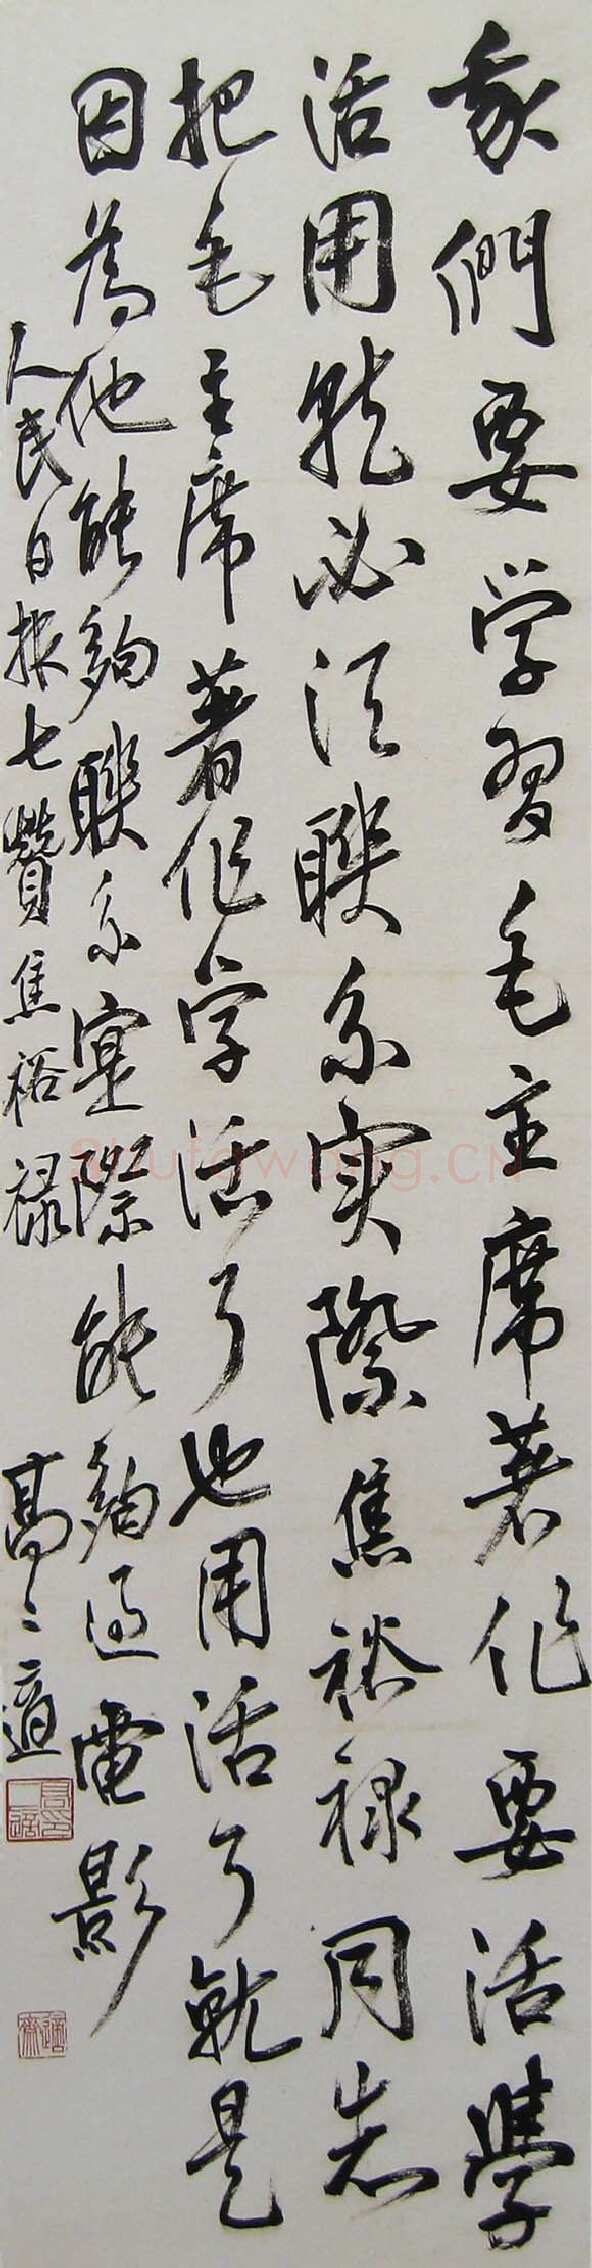 我們要学習毛主席著作要活學
活用就必須聯系实際焦裕禄同志
把毛主席著作学活了也用活了就是
因為他能夠聯系實際能夠過電影
人民日报七赞焦裕禄
高二適
shufawang.CN